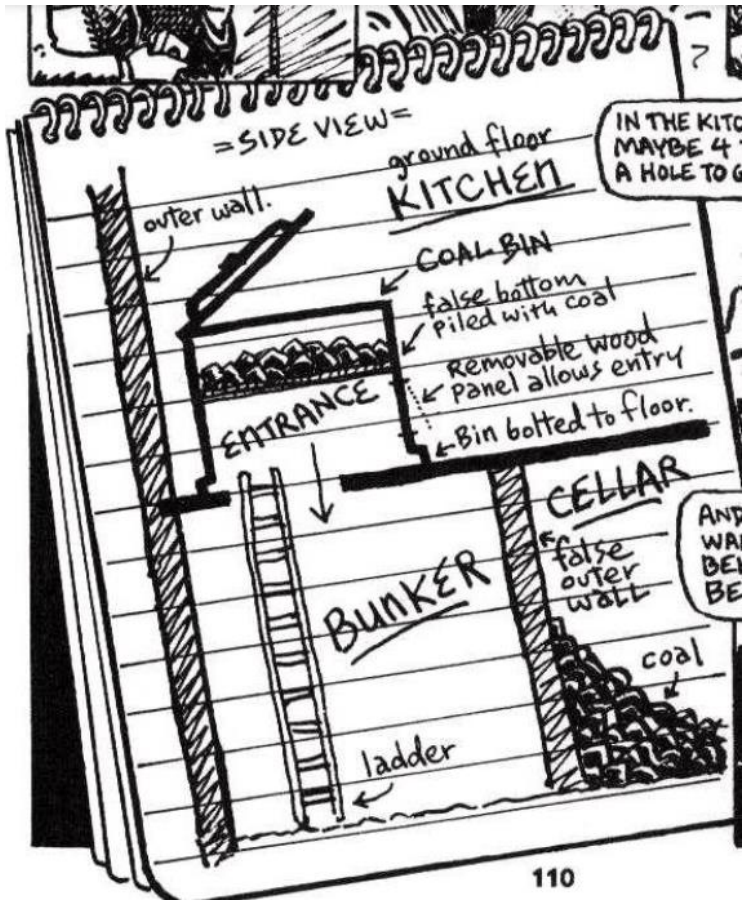 =SIDE VIEW=
ground floor
KITCHEN
IN THE KITC
MAYBE 4
A HOLE TO G
outer wall.
COAL BIN
false bottom
piled with coal
Removable wood
panel allows entry
ENTRANCE
Bin bolted to floor.
CELLAR
AND
WA
BE
BE
false
outer
wall
BUNKER
coal
ladder
110